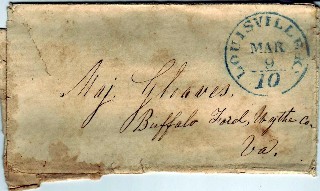 LOUISVILLE K
MAR
9
10
Maj Gleaves.
Buffalo Ford, Wythe Co
Va.